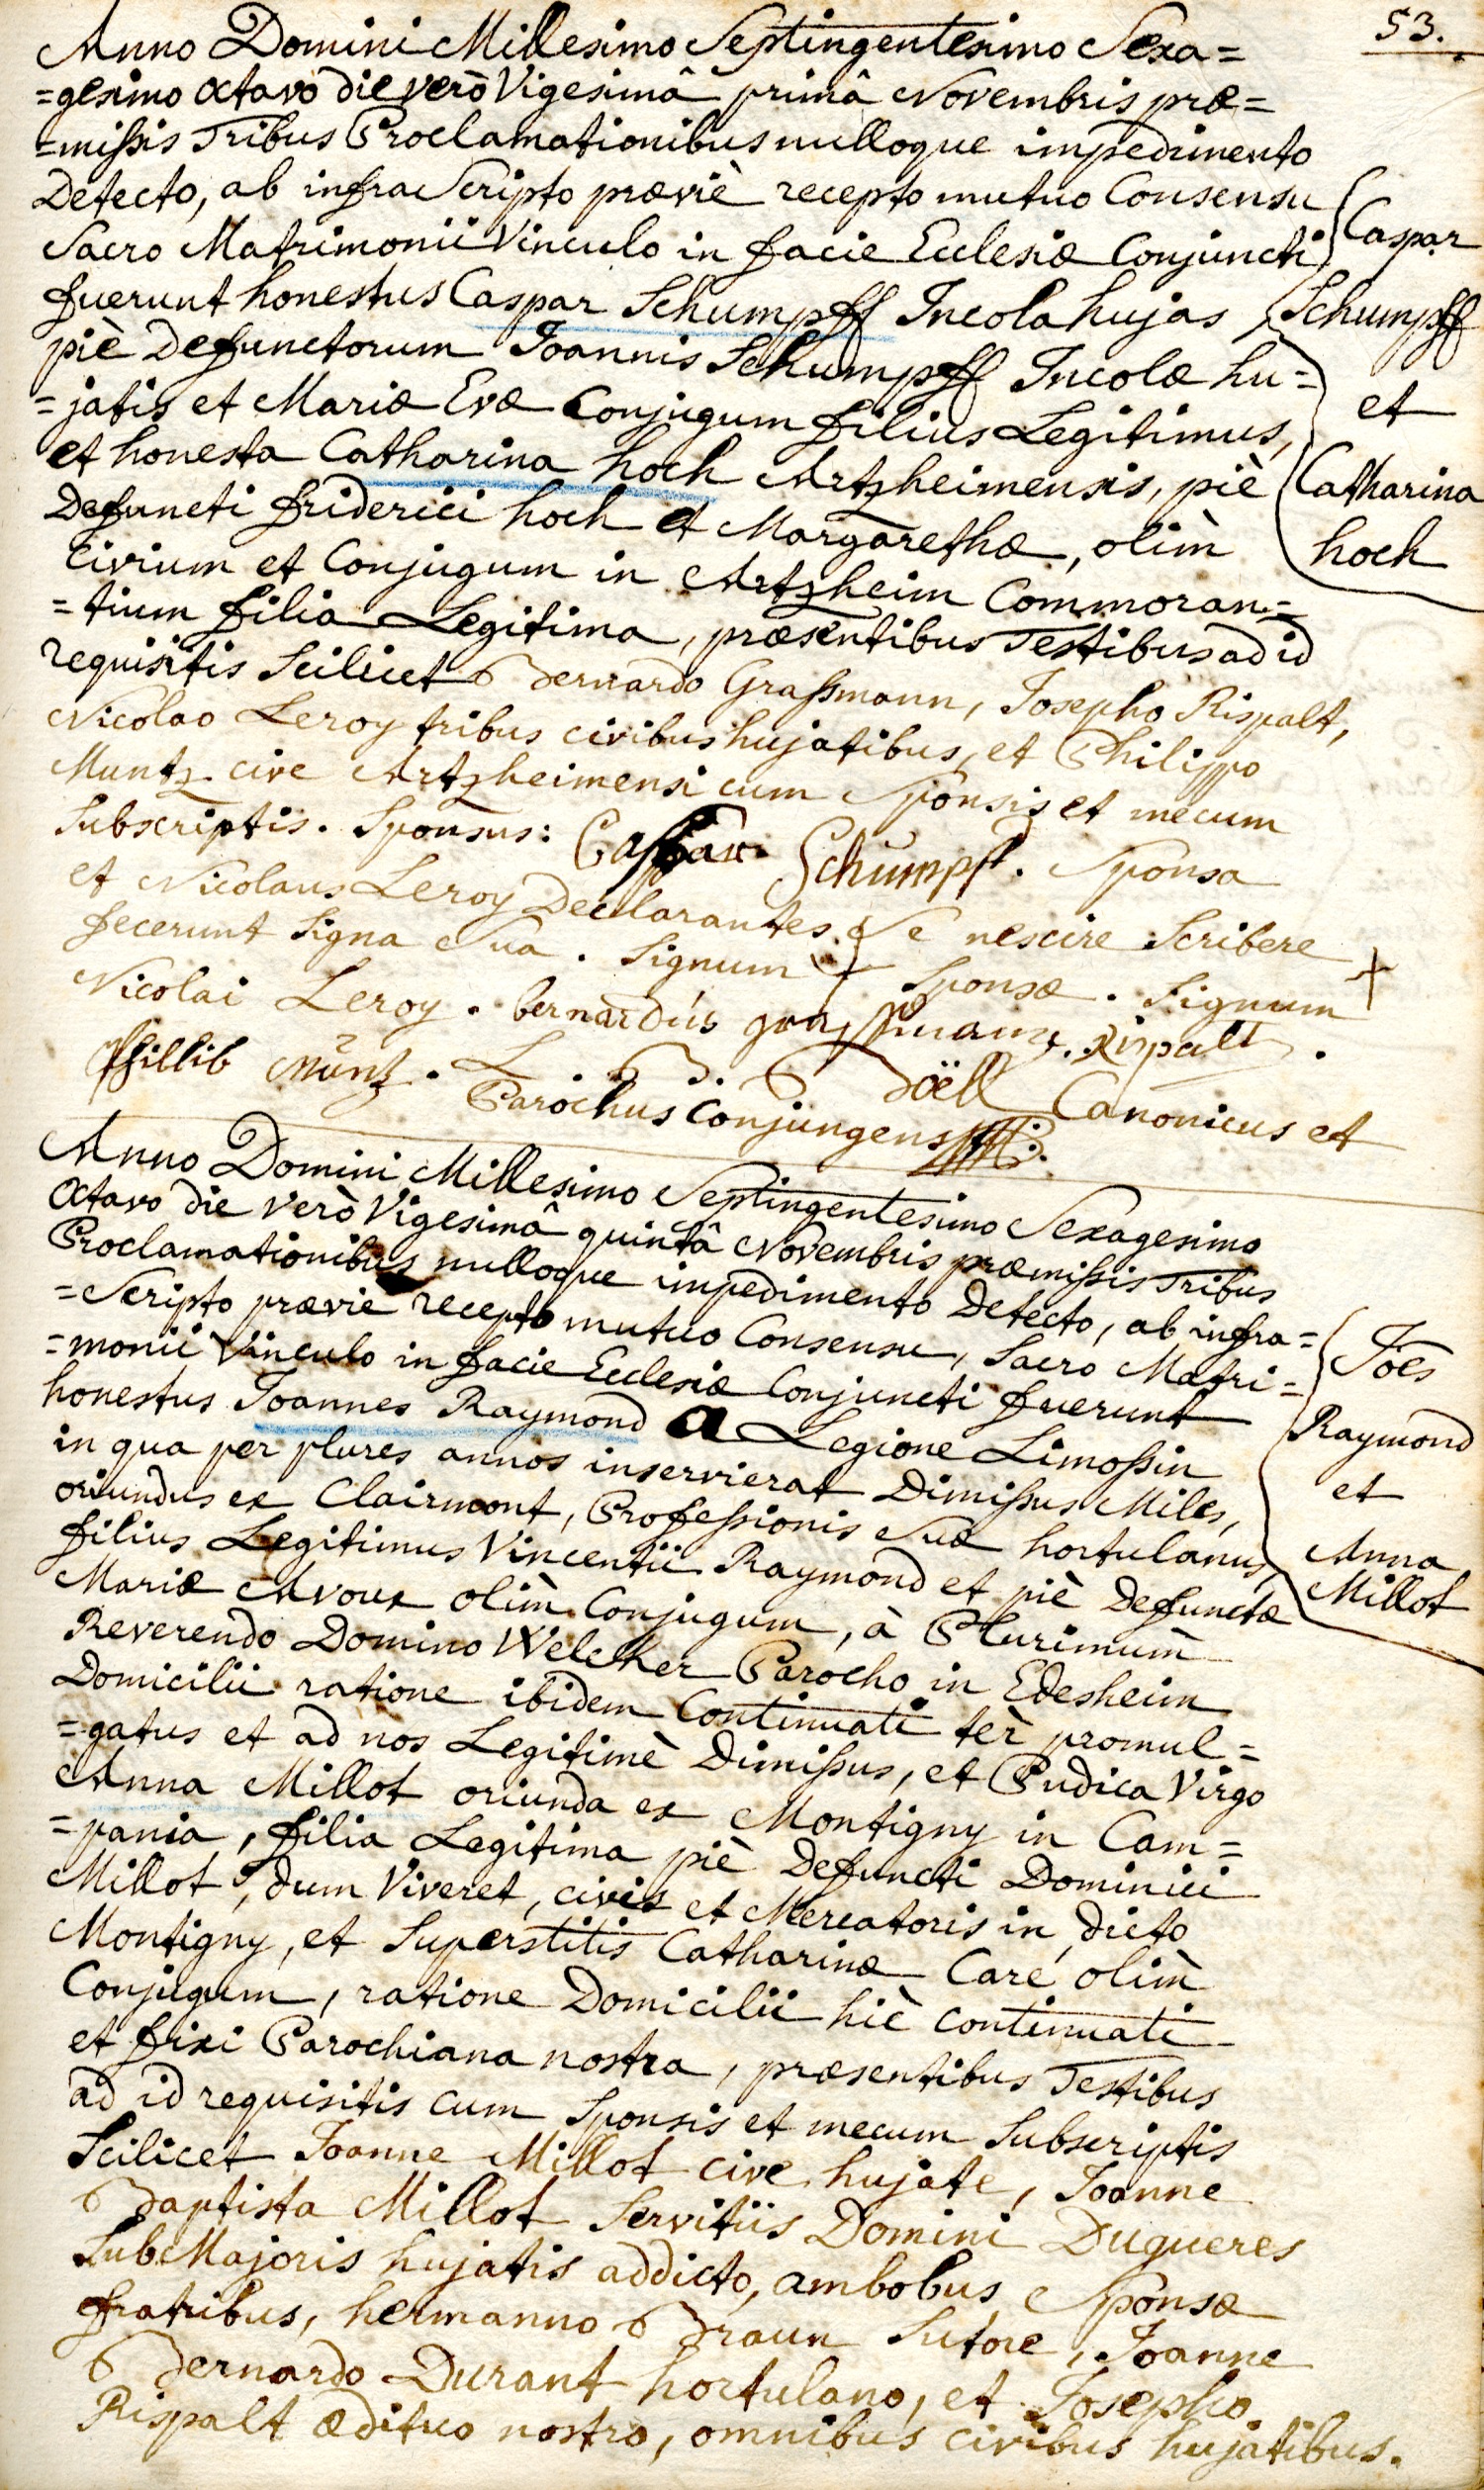 53.
Anno Domini Millesimo Septingentesimo Sexa=
=gesimo octavo die verò Vigesimâ primâ Novembris præ=
=missis Tribus Proclamationibus nulloque impedimento
Detecto, ab infra Scripto præviè recepto mutuo Consensu
Sacro Matrimonii Vinculo in facie Ecclesiæ Conjuncti
fuerunt honestus Caspar Schumpff Incola hujas,
piè Defunctorum Joannis Schumpff Incolæ hu=
=jatis et Mariæ Evæ Conjugum filius Legitimus,
et honesta Catharina hoch Artzheimensis, piè
Defuncti friderici hoch et Margarethæ, olim̀
Civium et Conjugum in Artzheim Commoran=
=tium filia Legitima, præsentibus Testibus ad id
requisitis Scilicet Bernardo Graſsmann, Josepho Rispalt,
Nicolao Leroy tribus civibus hujatibus, et Philippo
Muntz cive Artzheimensi cum Sponsis et mecum
Subscriptis. Sponsus: Casbar Schumpf. Sponsa
et Nicolaus Leroy Declarantes Se nescire Scribere
fecerunt Signa Sua. Signum + Sponsæ. Signum +
Nicolai Leroy. bernardus graſsmann. Rispalt.
Phillib Müntz. L. B. Döell Canonicus et
Parochus Conjungens
Caspar
Schumpff
et
Catharina
hoch
Anno Domini Millesimo Septingentesimo Sexagesimo
Octavo die verò Vigesimâ quintâ Novembris præmissis Tribus
Proclamationibus nulloque impedimento Detecto, ab infra=
=Scripto prævie recepto mutuo Consensu, Sacro Matri=
=monii Vinculo in facie Ecclesiæ Conjuncti fuerunt
honestus Joannes Raymond a Legione Limoſsin
in qua per plures annos inservierat Dimiſsus Miles,
oriundus ex Clairmont, Profeſsionis Suæ hortulanus,
filius Legitimus Vincentii Raymond et piè Defunctæ
Mariæ Avoux olim̀ Conjugum, à Plurimum̀
Reverendo Domino Welcker Parocho in Edesheim
Domicilii ratione ibidem Continuati tèr promul=
=gatus et ad nos Legitimè Dimiſsus, et Pudica Virgo
Anna Millot oriunda ex Montigny in Cam=
=pania, filia Legitima piè Defuncti Dominici
Millot, dum Viveret, civis et Mercatoris in dicto
Montigny, et Superstitis Catharinæ Caré olim̀
Conjugum, ratione Domicilii hic̀ continuati
et fixi Parochiana nostra, præsentibus Testibus
ad id requisitis cum Sponsis et mecum Subscriptis
Scilicet Joanne Millot cive hujate, Joanne
Baptista Millot Servitiis Domini Dugueres
SubMajoris hujatis addicto, ambobus Sponsæ
fratribus, hermanno Braun Sutore, Joanne
Bernardo Durant hortulano, et Josepho
Rispalt ædituo nostro, omnibus civibus hujatibus.
Joes
Raymond
et
Anna
Millot